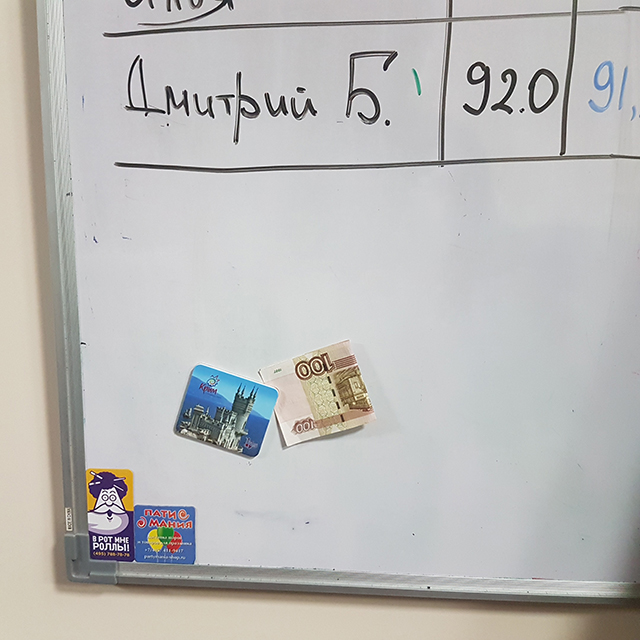 Дмитрий Б. 92.0 91,
Крым
100
100
В РОТ МНЕ
РОЛЛЫ!
ПАТИ
МАНИЯ